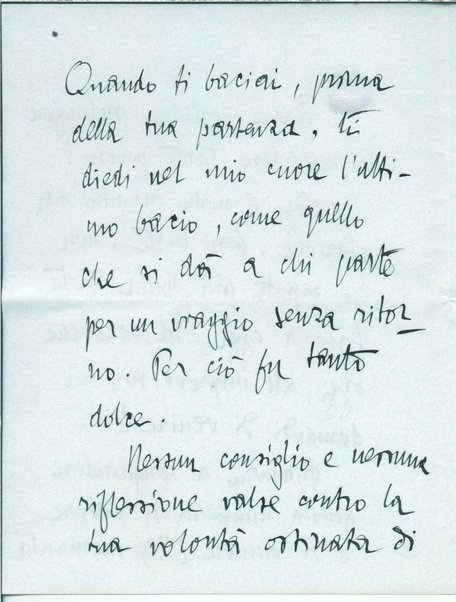 Quando ti baciai, prima
della tua partenza, ti
diedi nel mio cuore l'ulti-
mo bacio, come quello
che si dà a chi parte
per un viaggio senza ritor-
no. Per ciò fu tanto
dolce.
Nessun consiglio e nessuna
riflessione valse contro la
tua volontà ostinata di